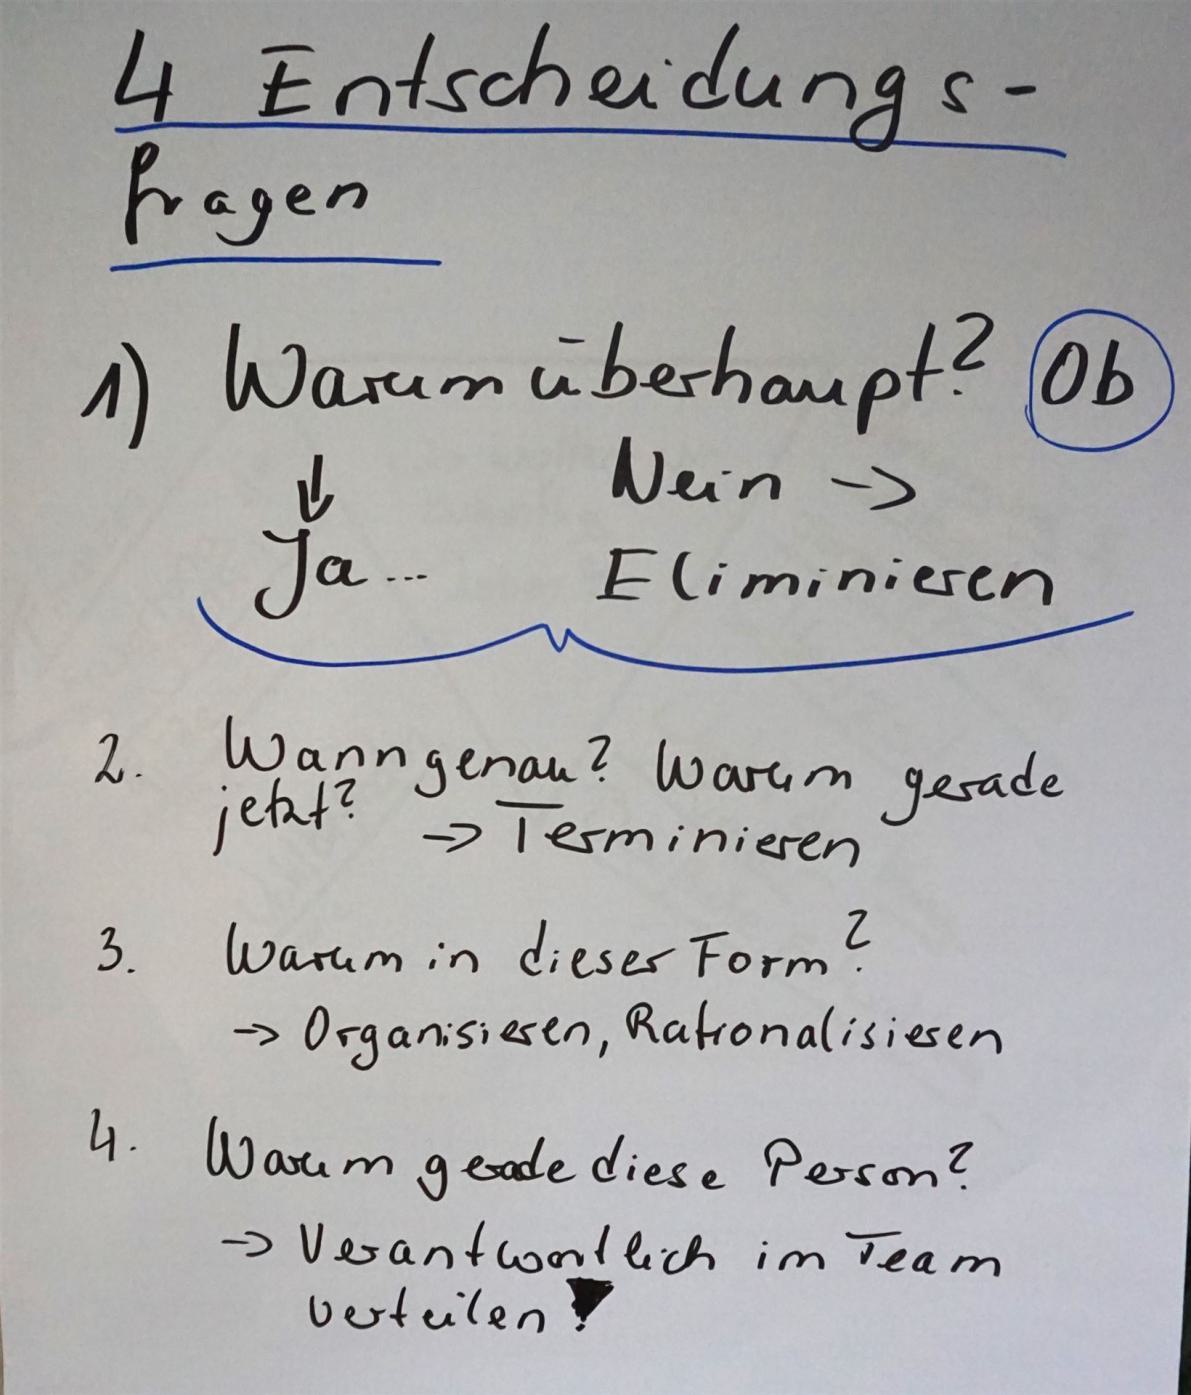 4 Entscheidungs-
fragen
1) Warum überhaupt? Ob
↓ Nein ->
Ja... Eliminieren
2. Wann genau? Warum gerade
jetzt? -> Terminieren
3. Warum in dieser Form?
-> Organisieren, Rationalisieren
4. Warum gerade diese Person?
-> Verantwortlich im Team
verteilen!